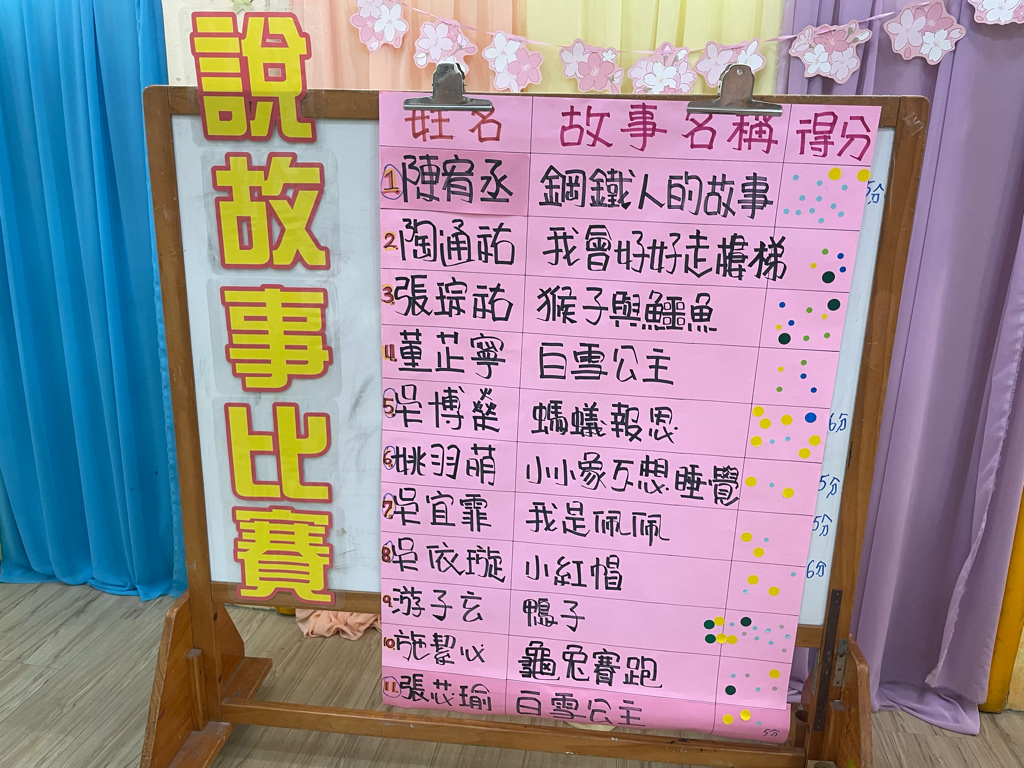 說故事比賽
姓名 故事名稱 得分
1 陳宥丞 鋼鐵人的故事 5分
2. 陶通祐 我會好好走樓梯
3. 張琮祐 猴子與鱷魚
4. 董芷寧 白雪公主
5. 吳博燊 螞蟻報恩 6分
6. 姚羽萌 小小象不想睡覺 5分
7. 吳宜霏 我是佩佩 5分
8. 吳依璇 小紅帽 6分
9. 游子玄 鴨子
10. 施絜心 龜兔賽跑
11. 張芯瑜 白雪公主 5分